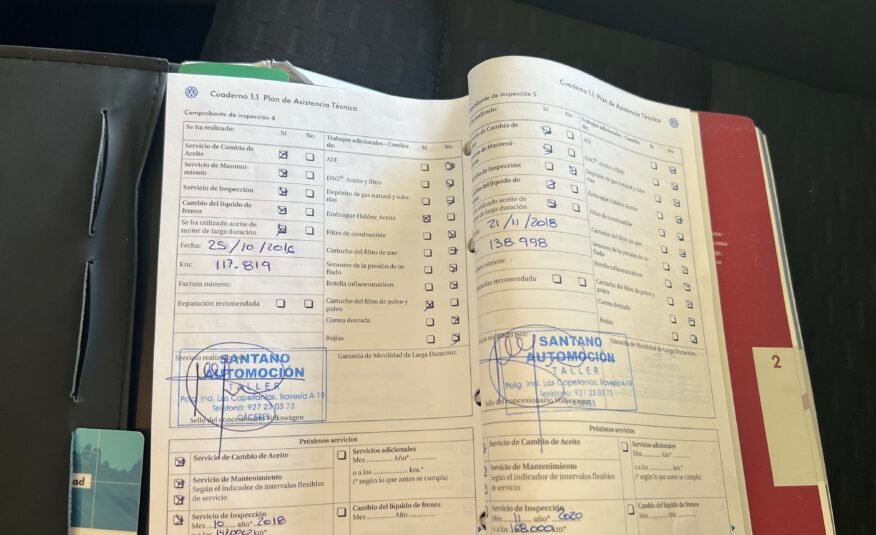 Cuaderno 1.1 Plan de Asistencia Técnica
Comprobante de inspección 4
Se ha realizado: Sí No
Servicio de Cambio de Aceite
Servicio de Mantenimiento
Servicio de Inspección
Cambio del líquido de frenos
Se ha utilizado aceite de motor de larga duración
Fecha: 25/10/2016
Km: 117.819
Factura número:
Reparación recomendada
Trabajos adicionales - Cambio de: Sí No
ATF
DSG®: Aceite y filtro
Depósito de gas natural y tuberías
Embrague Haldex: Aceite
Filtro de combustible
Cartucho del filtro de aire
Sensores de la presión de inflado
Botella inflaneumáticos
Cartucho del filtro de polvo y polen
Correa dentada
Bujías
Garantía de Movilidad de Larga Duración:
Servicio realizado
SANTANO
AUTOMOCIÓN
TALLER
Polg. Ind. Las Capellanías, Travesía A-19
Teléfono: 927 23 03 73
CÁCERES
Sello del concesionario Volkswagen
Próximos servicios
Servicio de Cambio de Aceite
Servicio de Mantenimiento
Según el indicador de intervalos flexibles de servicio
Servicio de Inspección
Mes 10 año* 2018
Servicios adicionales
Mes Año*
o a los km.*
(* según lo que antes se cumpla)
Cambio del líquido de frenos
Mes Año
Cuaderno 1.1 Plan de Asistencia Técnica
de inspección 5
realizado: Sí No
de Cambio de
de Manteni-
de Inspección
del líquido de
utilizado aceite de
de larga duración
21/11/2018
138.998
número:
recomendada
Trabajos adicionales - Cambio de: Sí No
ATF
DSG®: Aceite y filtro
Depósito de gas natural y tuberías
Embrague Haldex: Aceite
Filtro de combustible
Cartucho del filtro de aire
Sensores de la presión de inflado
Botella inflaneumáticos
Cartucho del filtro de polvo y polen
Correa dentada
Bujías
Garantía de Movilidad de Larga Duración:
realizado por:
SANTANO
AUTOMOCIÓN
TALLER
Polg. Ind. Las Capellanías, Travesía A-19
Teléfono: 927 23 03 73
CÁCERES
Sello del concesionario Volkswagen
Próximos servicios
Servicio de Cambio de Aceite
Servicio de Mantenimiento
Según el indicador de intervalos flexibles de servicio
Servicio de Inspección
Mes 11 año* 2020
o a los 168.000 km*
Servicios adicionales
Mes Año*
o a los km.*
(* según lo que antes se cumpla)
Cambio del líquido de frenos
Mes Año
2
ad